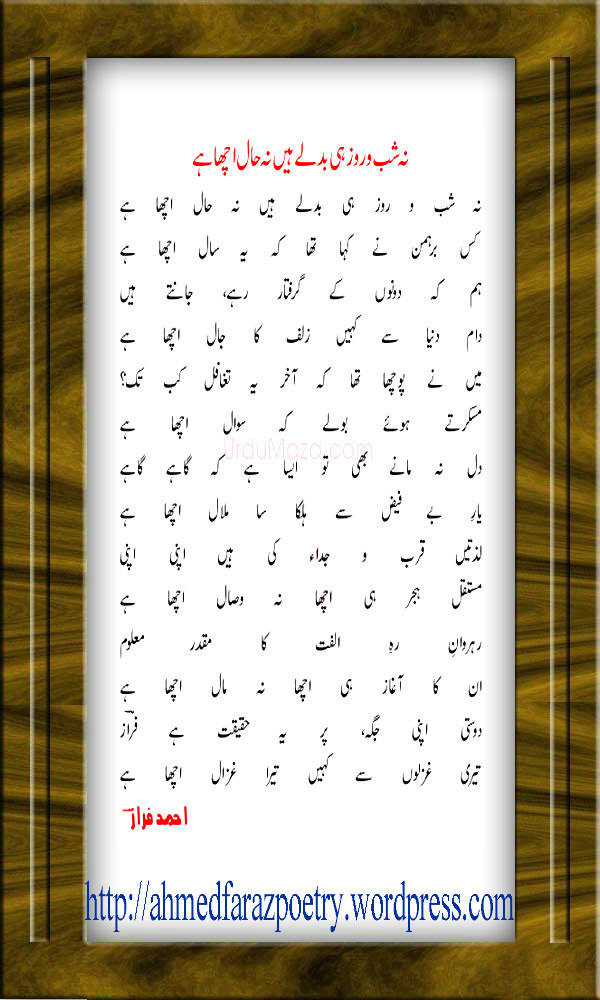 نہ شب و روز ہی بدلے ہیں نہ حال اچھا ہے
نہ شب و روز ہی بدلے ہیں نہ حال اچھا ہے
کس برہمن نے کہا تھا کہ یہ سال اچھا ہے
ہم کہ دونوں کے گرفتار رہے، جانتے ہیں
دام دنیا سے کہیں زلف کا جال اچھا ہے
میں نے پوچھا تھا کہ آخر یہ تغافل کب تک؟
مسکرتے ہوئے بولے کہ سوال اچھا ہے
UrduMaza.com
دل نہ مانے بھی تو ایسا ہے کہ گاہے گاہے
یارِ بے فیض سے ہلکا سا ملال اچھا ہے
لذتیں قرب و جداء کی ہیں اپنی اپنی
مستقل ہجر ہی اچھا نہ وصال اچھا ہے
رہروانِ رہِ الفت کا مقدر معلوم
ان کا آغاز ہی اچھا نہ مال اچھا ہے
دوستی اپنی جگہ، پر یہ حقیقت ہے فرازؔ
تیری غزلوں سے کہیں تیرا غزال اچھا ہے
احمد فرازؔ
http://ahmedfarazpoetry.wordpress.com